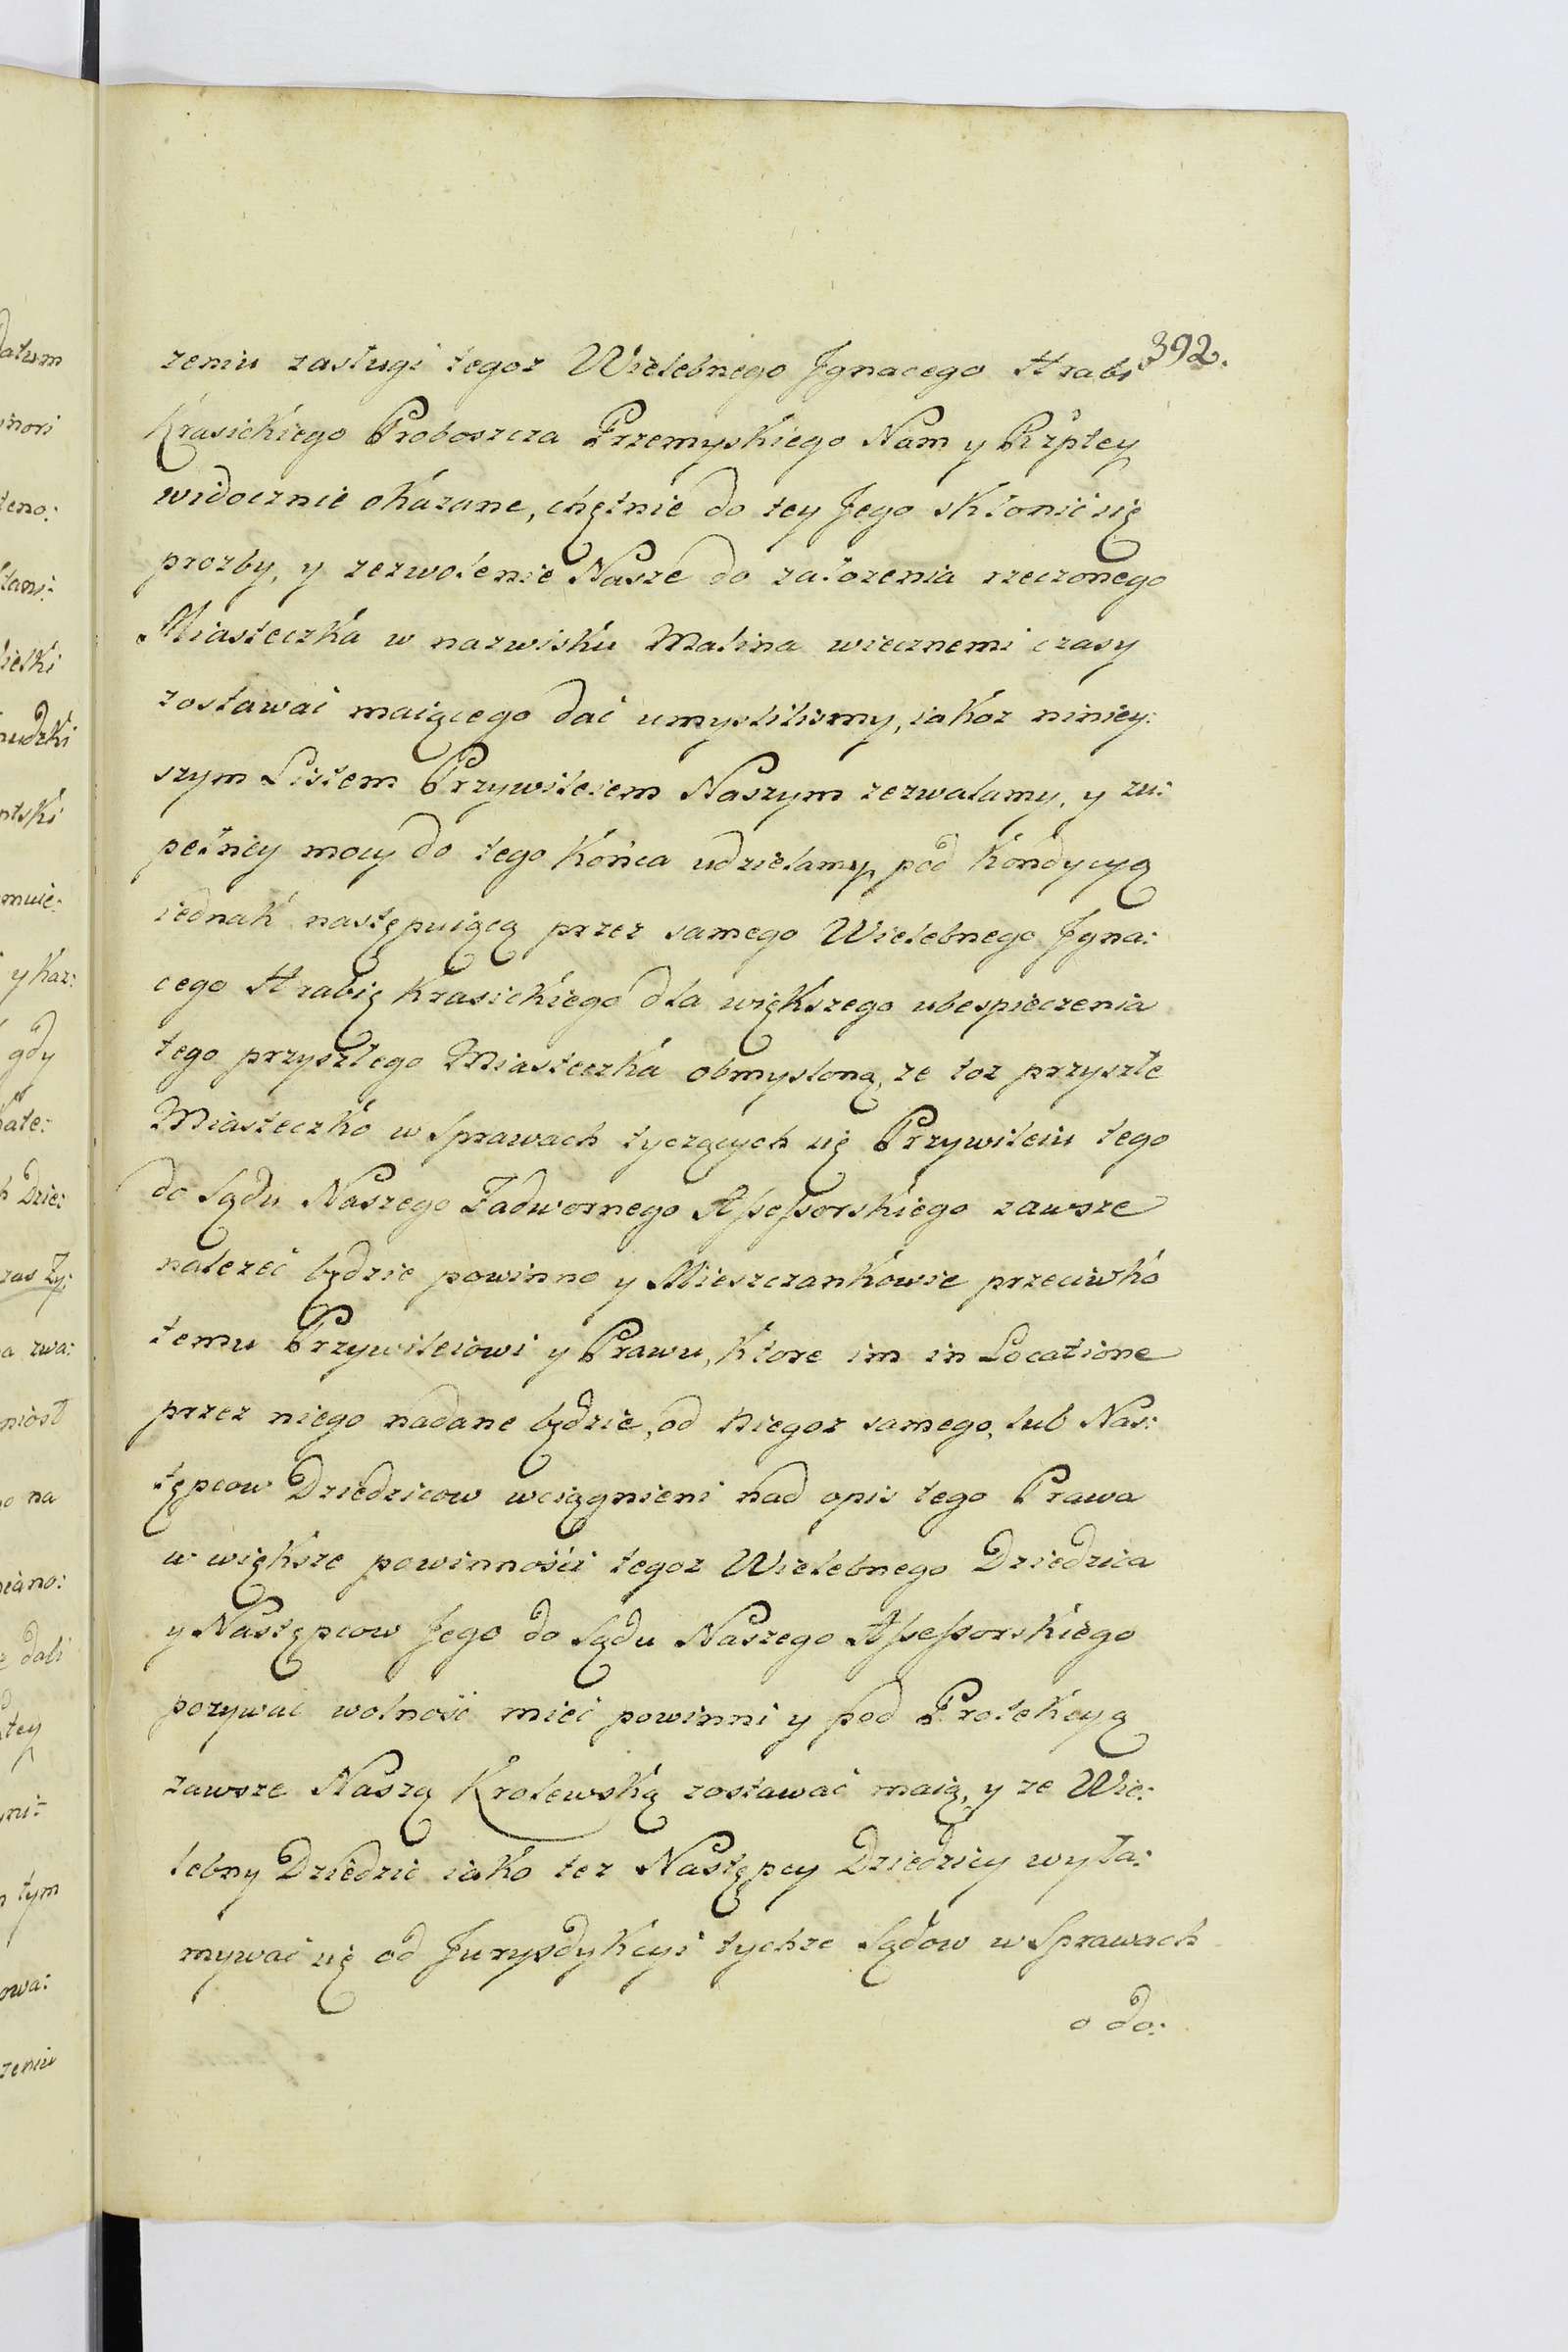 392.
zeniu zasługi tegoz Wielebnego Jgnacego Hrabi
Krasickiego Proboszcza Przemyskiego Nam y Rzptey
widocznie okazane, chętnie do tey Jego skłonić się
prozby, y zezwolenie Nasze do załozenia rzeczonego
Miasteczka w nazwisku Malina wiecznemi czasy
zostawać maiącego dać umyslilismy, iakoz niniey:
szym Listem Przywileiem Naszym zezwalamy, y zu:
pełney mocy do tego końca udzielamy, pod kondycyą
iednak następuiącą przez samego Wielebnego Jgna:
cego Hrabię Krasickiego dla większego ubespieczenia
tego przyszłego Miasteczka obmysloną, ze toz przyszłe
Miasteczko w Sprawach tyczących się Przywileiu tego
do Sądu Naszego Zadwornego Assessorskiego zawsze
nalezeć będzie powinno y Mieszczankowie przeciwko
temu Przywileiowi y Prawu, ktore im in Locatione
przez niego nadane będzie, od niegoz samego, lub Nas:
tępcow Dziedzicow wciągnieni nad opis tego Prawa
w większe powinności tegoz Wielebnego Dziedzica
y Następcow Jego do Sądu Naszego Assessorskiego
pozywać wolność mieć powinni y pod Protekcyą
zawsze Naszą Krolewską zostawać maią, y ze Wie:
lebny Dziedzic iako tez Następcy Dziedzicy wyła:
mywać się od Jurysdykcyi tychze Sądow w Sprawach
o do:
datum
gdy
y kaz:
dali
na
tym
zeniu